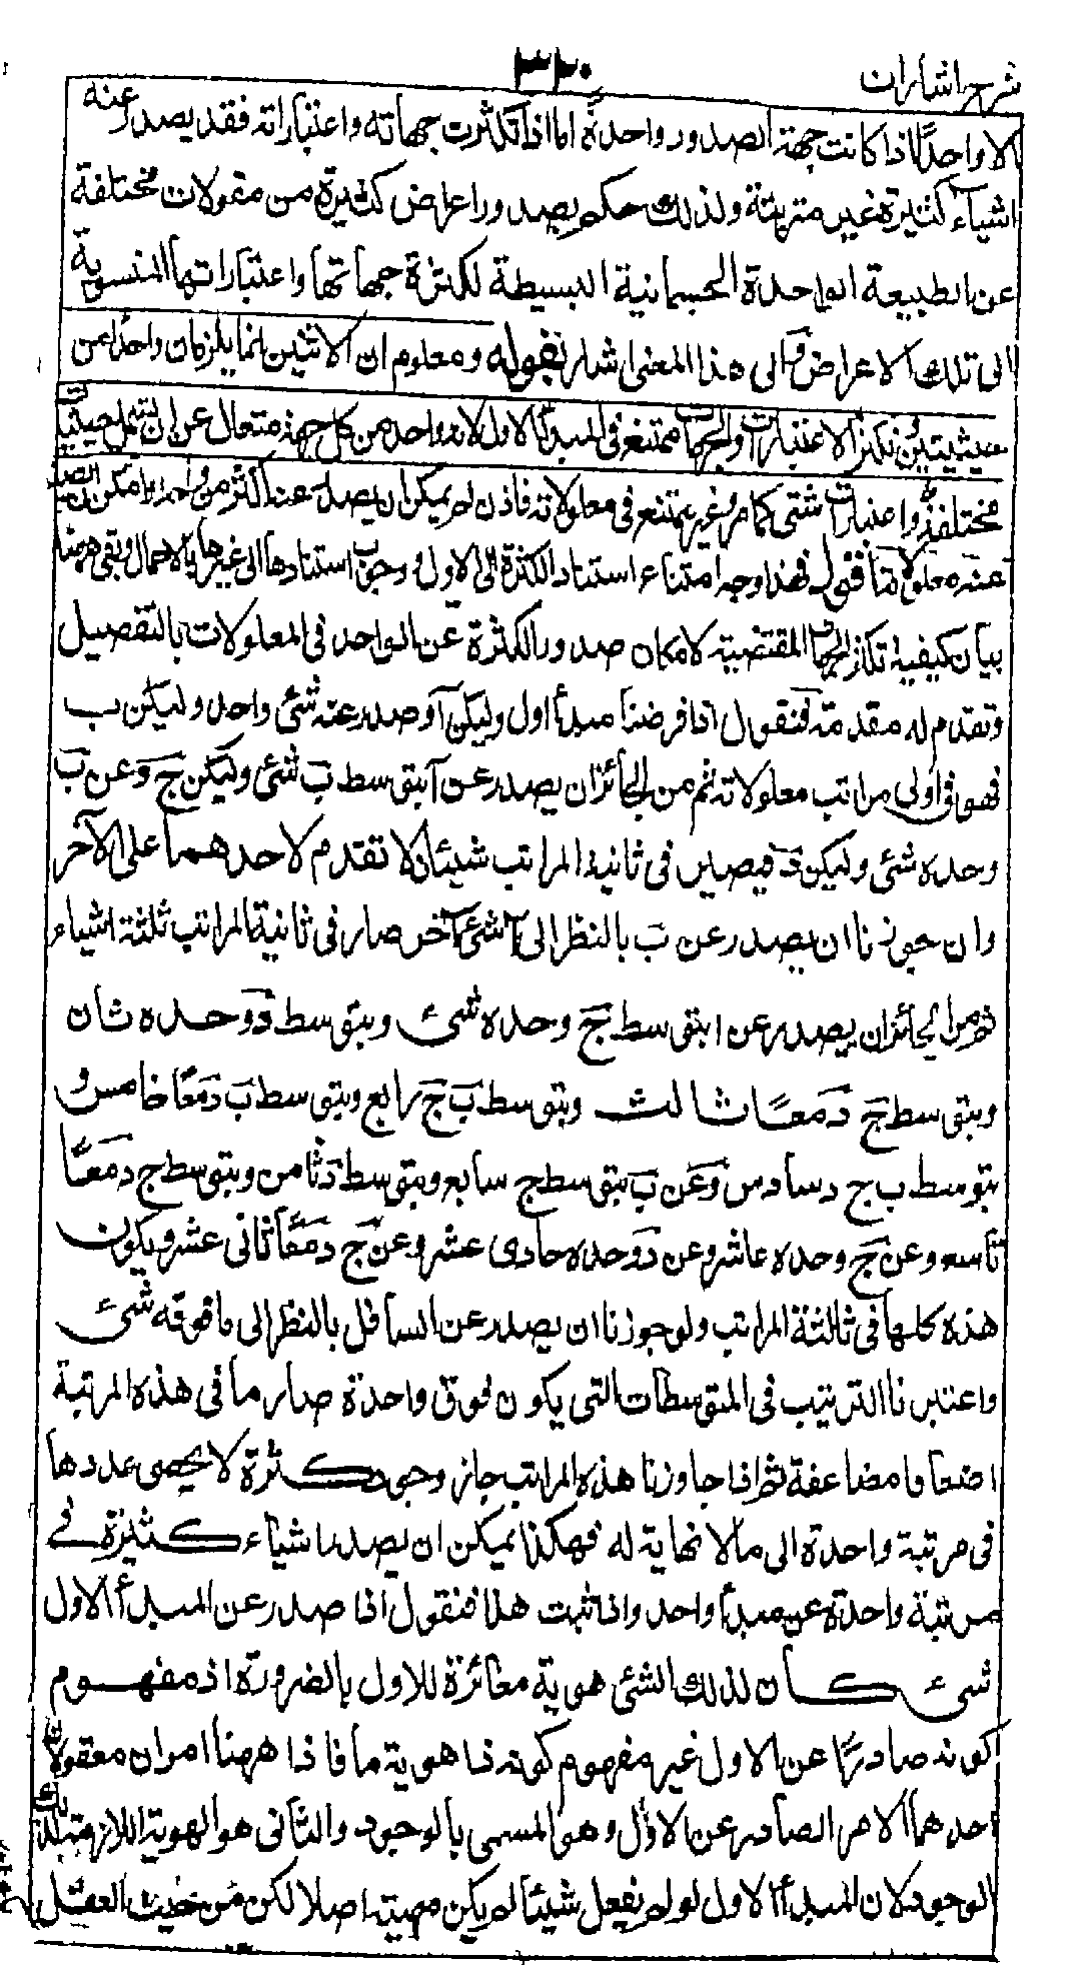 شرح اشارات
٣٢٠
الا واحدًا اذا كانت جهة الصدور واحدة اما اذا تكثرت جهاته واعتباراته فقد يصدر عنه
اشياء كثيرة غير مترتبة ولذلك حكم بصدور اعراض كثيرة من مقولات مختلفة
عن الطبيعة الواحدة الجسمانية البسيطة لكثرة جهاتها واعتباراتها المنسوبة
الى تلك الاعراض والى هذا المعنى اشار بقوله ومعلوم ان الاثنين انما يلزمان واحدا من
حيثيتين وتكثر الاعتبارات والجهات ممتنع فى المبدأ الاول لانه واحد من كل جهة متعال عن ان يشتمل حيثيات
مختلفة واعتبارات شتى كما مر وغير ممتنع فى معلولاته فاذن لم يمكن ان يصدر عنه اكثر من واحد وامكن ان يصدر
عنه معلولاتنا فقول فهذا وجه امتناع استناد الكثرة الى الاول ووجوب استنادها الى غيرها بالاجمال وبقى ههنا
بيان كيفية تكثر الجهات المقتضية لامكان صدور الكثرة عن الواحد فى المعلولات بالتفصيل
وتقدم له مقدمة فنقول اذا فرضنا مبدأ اول وليكن آ وصدر عنه شئ واحد وليكن ب
فهو فى اولى مراتب معلولاته ثم من الجائز ان يصدر عن آ بتوسط ب شئ وليكن ج وعن ب
وحده شئ وليكن د فيصير فى ثانية المراتب شيئان لا تقدم لاحدهما على الآخر
وان جوزنا ان يصدر عن ب بالنظر الى آ شئ آخر صار فى ثانية المراتب ثلثة اشياء
ثم من الجائز ان يصدر عن ا بتوسط ج وحده شئ وبتوسط د وحده ثان
وبتوسط ج د معًا ثالث وبتوسط ب ج رابع وبتوسط ب د معًا خامس و
بتوسط ب ج د سادس وعن ب بتوسط ج سابع وبتوسط د ثامن وبتوسط ج د معًا
تاسع وعن ج وحده عاشر وعن د وحده حادى عشر وعن ج د معًا ثانى عشر ويكون
هذه كلها فى ثالثة المراتب ولو جوزنا ان يصدر عن السافل بالنظر الى ما فوقه شئ
واعتبرنا الترتيب فى المتوسطات التى يكون فوق واحدة صار ما فى هذه المرتبة
اضعافا مضاعفة ثم اذا جاوزنا هذه المراتب جاز وجود كثرة لا يحصى عددها
فى مرتبة واحدة الى ما لا نهاية له فهكذا يمكن ان يصدر اشياء كثيرة فى
مرتبة واحدة عن مبدأ واحد واذا ثبت هذا فنقول اذا صدر عن المبدأ الاول
شئ كان لذلك الشئ هوية مغائرة للاول بالضرورة اذ مفهوم
كونه صادرًا عن الاول غير مفهوم كونه ذا هوية ما فاذا ههنا امران معقولان
احدهما الامر الصادر عن الاول وهو المسمى بالوجود والثانى هو الهوية اللازمة لذلك
الوجود لان المبدأ الاول لو لم يفعل شيئًا لم يكن مهية اصلا لكن من حيث العقل